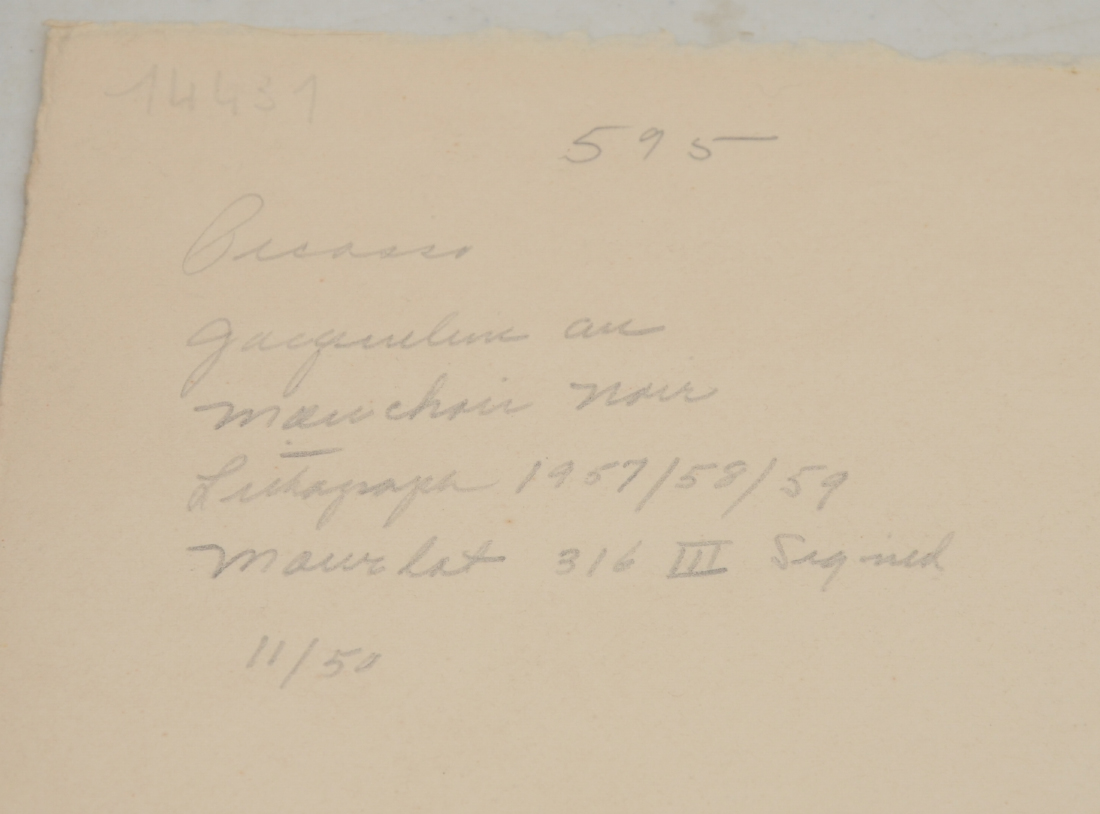 14431
595
Picasso
Jacqueline au
Mouchoir Noir
Lithograph 1957/58/59
Mourlot 316 III Signed
11/50